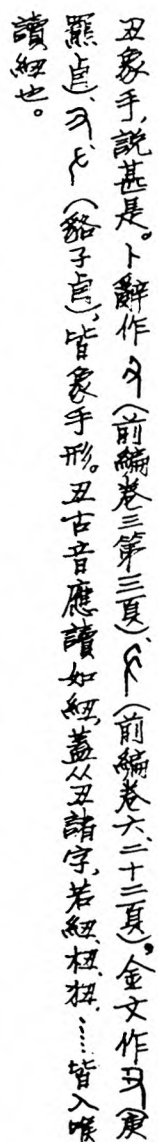 丑象手，說甚是。卜辭作（前編卷三第三頁）、（前編卷六、二十二頁），金文作（庚
羆卣）、（貉子卣），皆象手形。丑古音應讀如紐，蓋从丑諸字，若紐、杻、扭、……皆入喉
讀紐也。